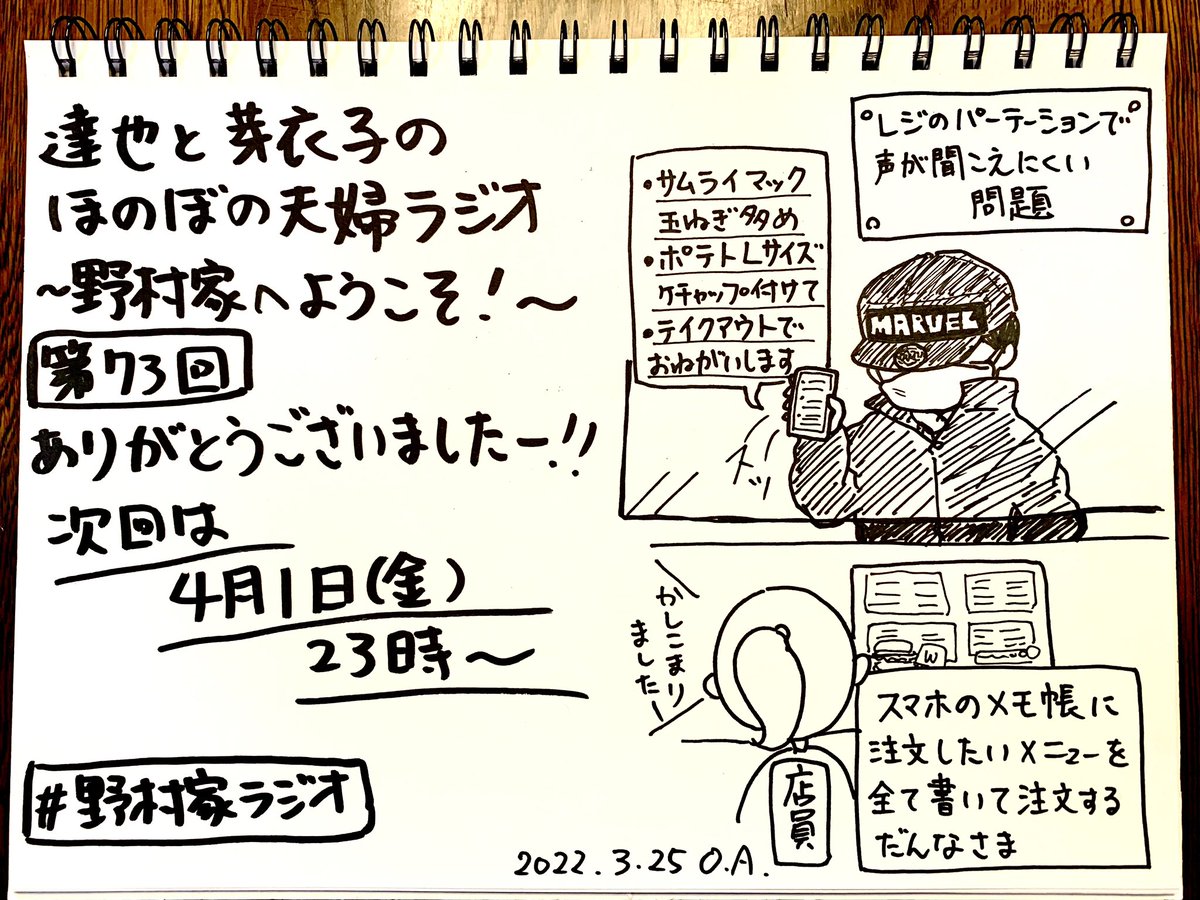 達也と芽衣子の
ほのぼの夫婦ラジオ
~野村家へようこそ!~
第73回
ありがとうございましたー!!
次回は
4月1日(金)
23時~
#野村家ラジオ
レジのパーテーションで
声が聞こえにくい
問題
・サムライマック
玉ねぎ多め
・ポテトLサイズ
ケチャップ付けて
・テイクアウトで
おねがいします
MARVEL
スッ
かしこまり
ましたー
W
店員
スマホのメモ帳に
注文したいメニューを
全て書いて注文する
だんなさま
2022.3.25 O.A.